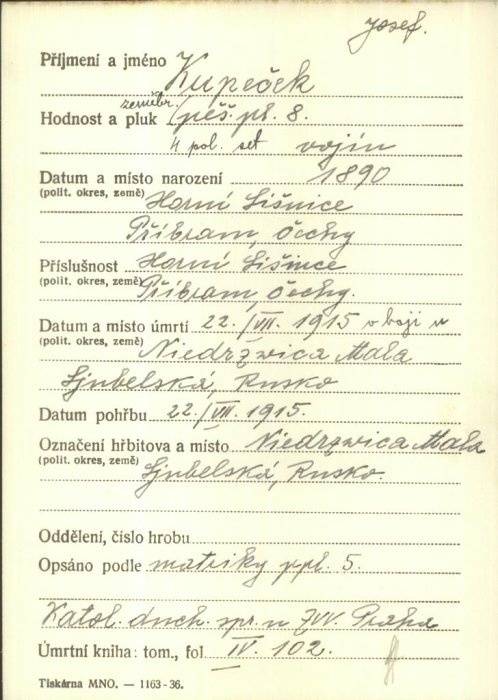 Josef.
Příjmení a jméno Kupeček
zeměbr.
Hodnost a pluk pěš. pl. 8.
4 pol. set vojín
Datum a místo narození 1890
(polit. okres, země) Horní Lišnice
Příbram, Čechy
Příslušnost Horní Lišnice
(polit. okres, země) Příbram, Čechy.
Datum a místo úmrtí 22./VII. 1915 v boji u
(polit. okres, země) Niedrzwica Mala
Ljubelská, Rusko
Datum pohřbu 22./VII. 1915.
Označení hřbitova a místo Niedrzwica Mala
(polit. okres, země) Ljubelská, Rusko.
Oddělení, číslo hrobu
Opsáno podle matriky ppl. 5.
Katol. duch. spr. u ZVV. Praha
Úmrtní kniha: tom., fol. IV. 102.
Tiskárna MNO. — 1163-36.